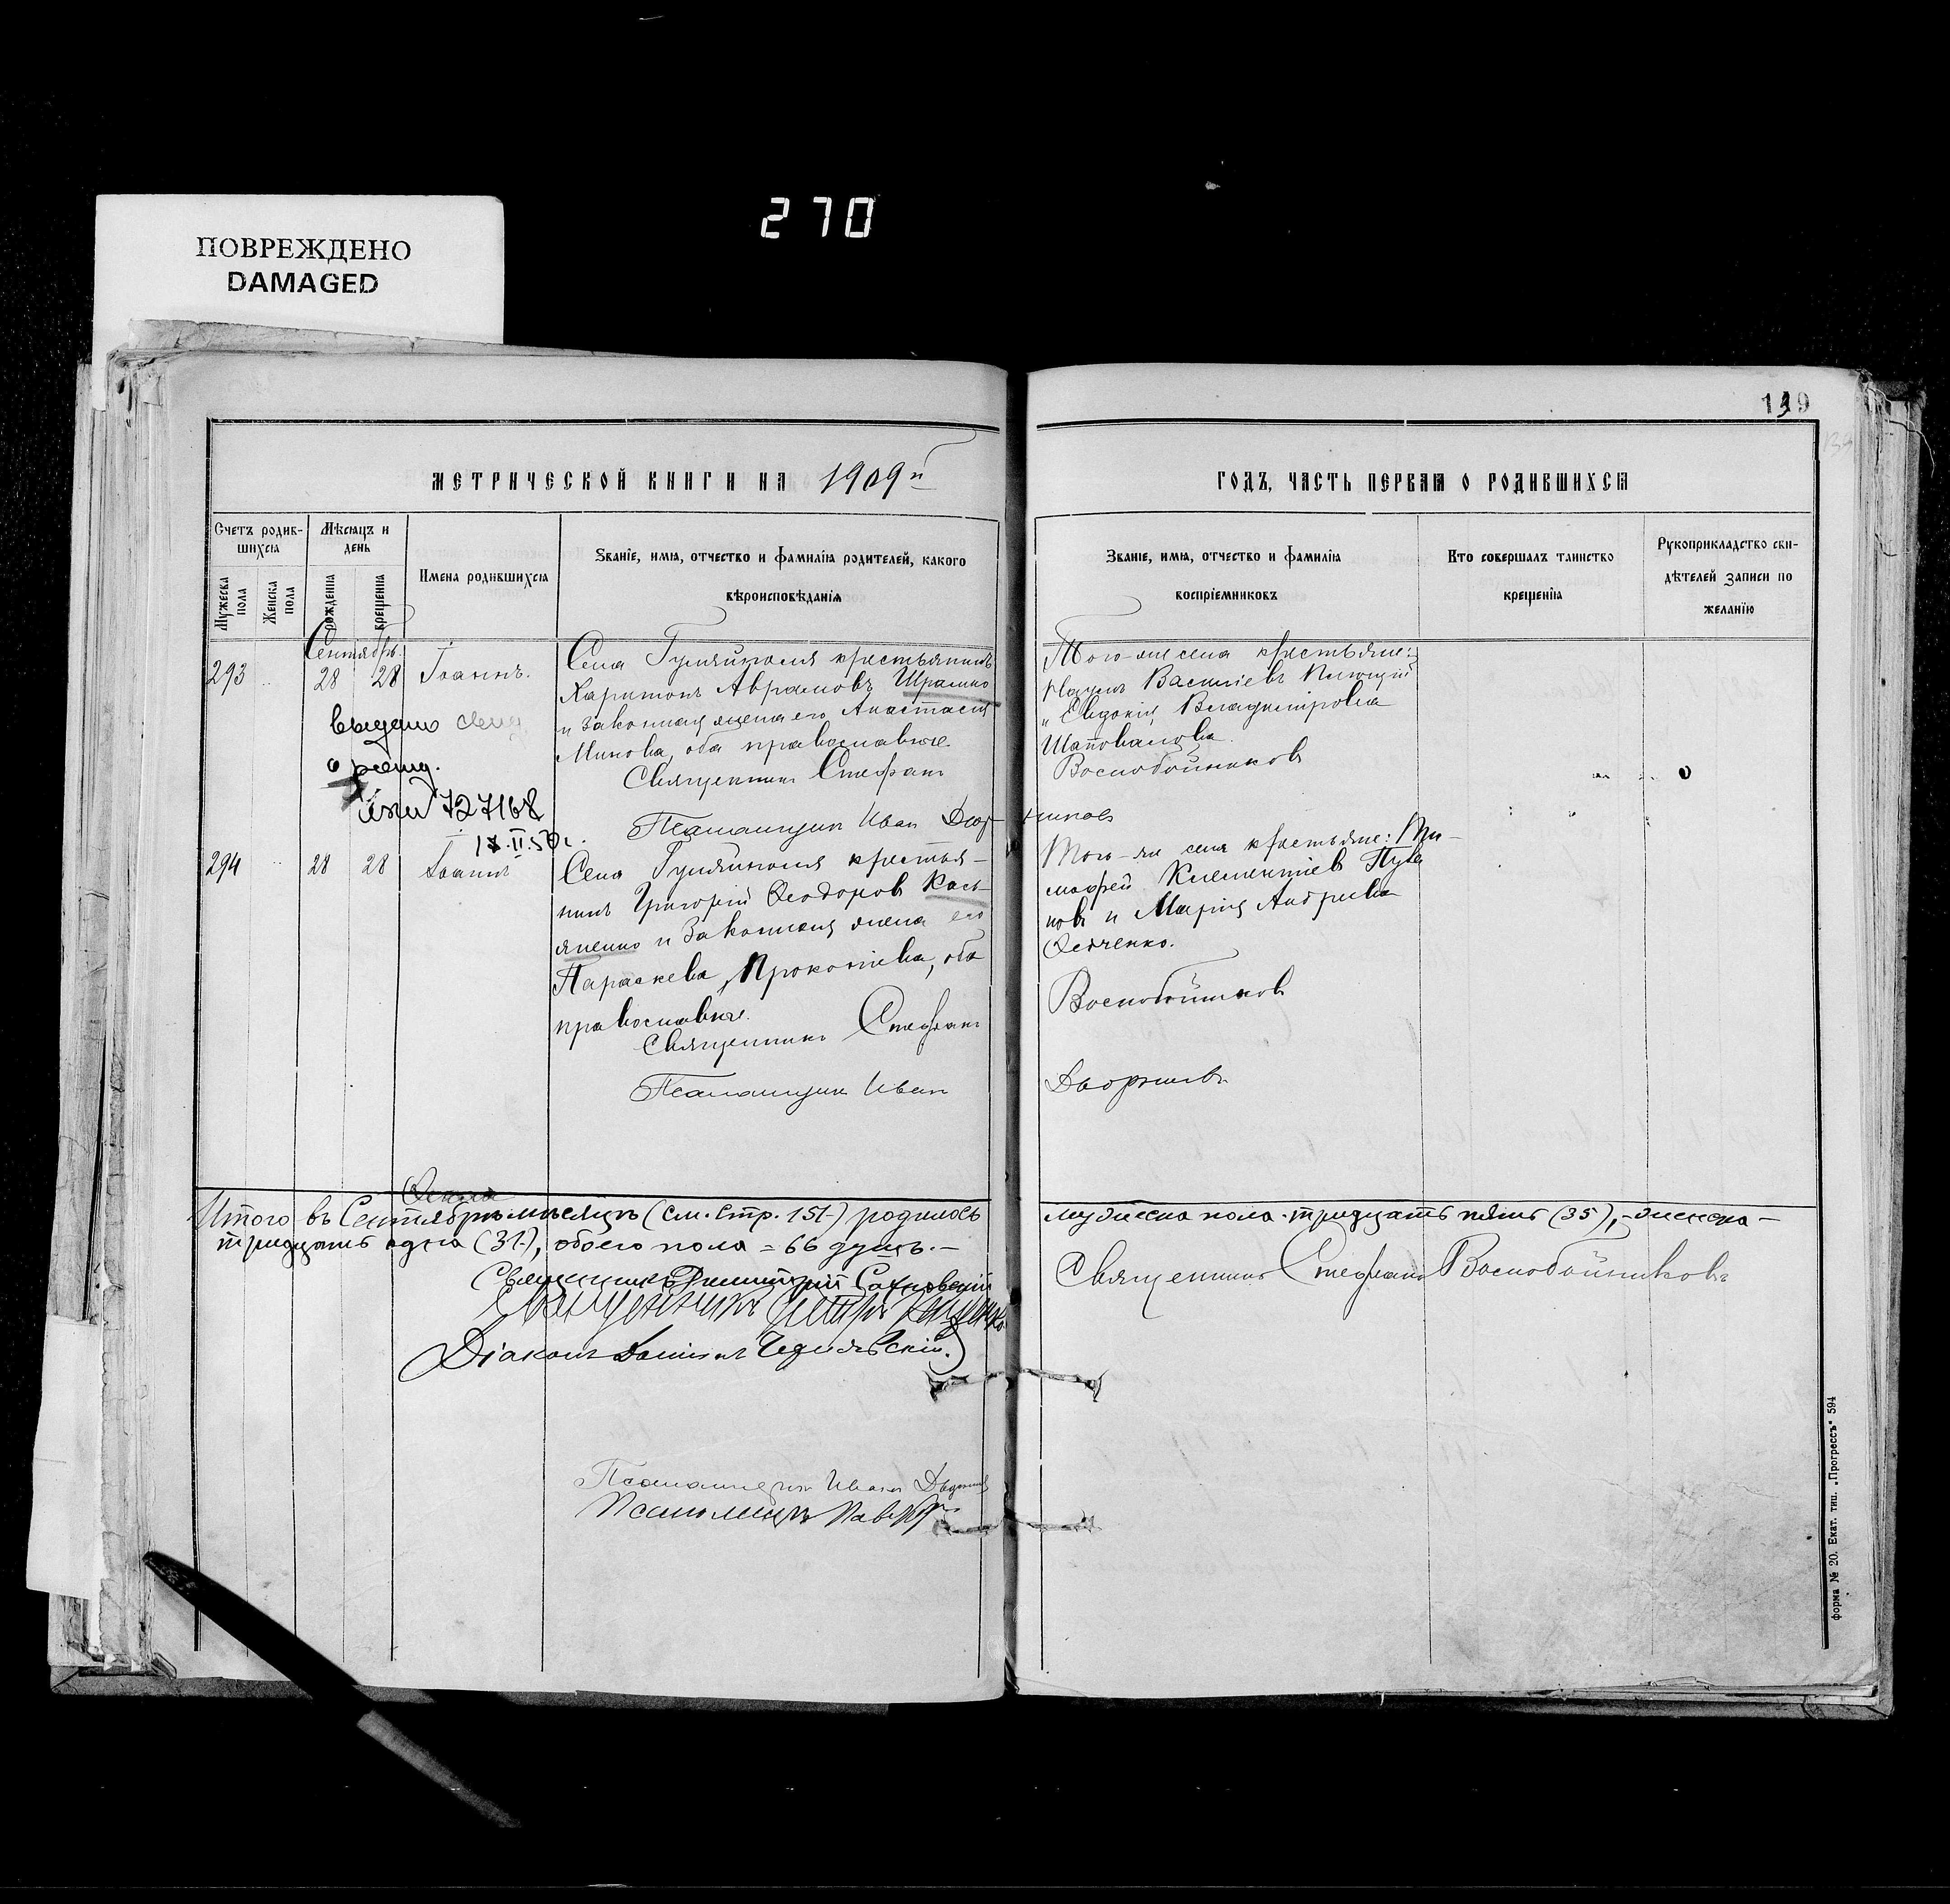 270
ПОВРЕЖДЕНО
DAMAGED
139
МЕТРИЧЕСКОЙ КНИГИ НА 1909й
ГОДЪ, ЧАСТЬ ПЕРВАЯ О РОДИВШИХСЯ
Счетъ родив-
шихся
Мѣсяцъ и
день
Мужеска
пола
Женска
пола
рожденія
крещенія
Имена родившихся
Званіе, имя, отчество и фамилія родителей, какого
вѣроисповѣданія
Званіе, имя, отчество и фамилія
воспріемниковъ
Кто совершалъ таинство
крещенія
Рукоприкладство сви-
дѣтелей записи по
желанію
Сентябрь
293 28 28 Іоаннъ.
Села Гуляйполя крестьянинъ
Харитонъ Аврамовъ Шрамко
и законная жена его Анастасія
Минова, оба православные.
Священникъ Стефанъ
Псаломщик Иван Двор
выдано
о рожд.
727168
17.II.50г.
Того-же села крестьяне:
Наумъ Василіевъ
и Евдокія Владиміровна
Шаповалова.
Воскобойниковъ
никовъ
294 28 28 Іоаннъ
Села Гуляйполя крестья-
нинъ Григорій Ѳеодоров Кась-
яненко и законная жена его
Параскева Прокопіева, оба
православные.
Священникъ Стефанъ
Псаломщик Иван
Того-же села крестьяне: Ти-
мофей Климентіев
новъ и Марія Андреева
Ѳедченко.
Воскобойников
Итого въ Сентябрѣ мѣсяцѣ (см. стр. 151) родилось
мужеска пола тридцать пять (35), женска-
тридцать одна (31), обоего пола = 66 душъ.-
Священникъ Димитрій Сахновскій
Священникъ Стефанъ Воскобойниковъ
Священникъ Петръ
Діаконъ Даніилъ
Псаломщик Иванъ
Псаломщикъ Павелъ
форма № 20. Екат. тип. „Прогрессъ" 594